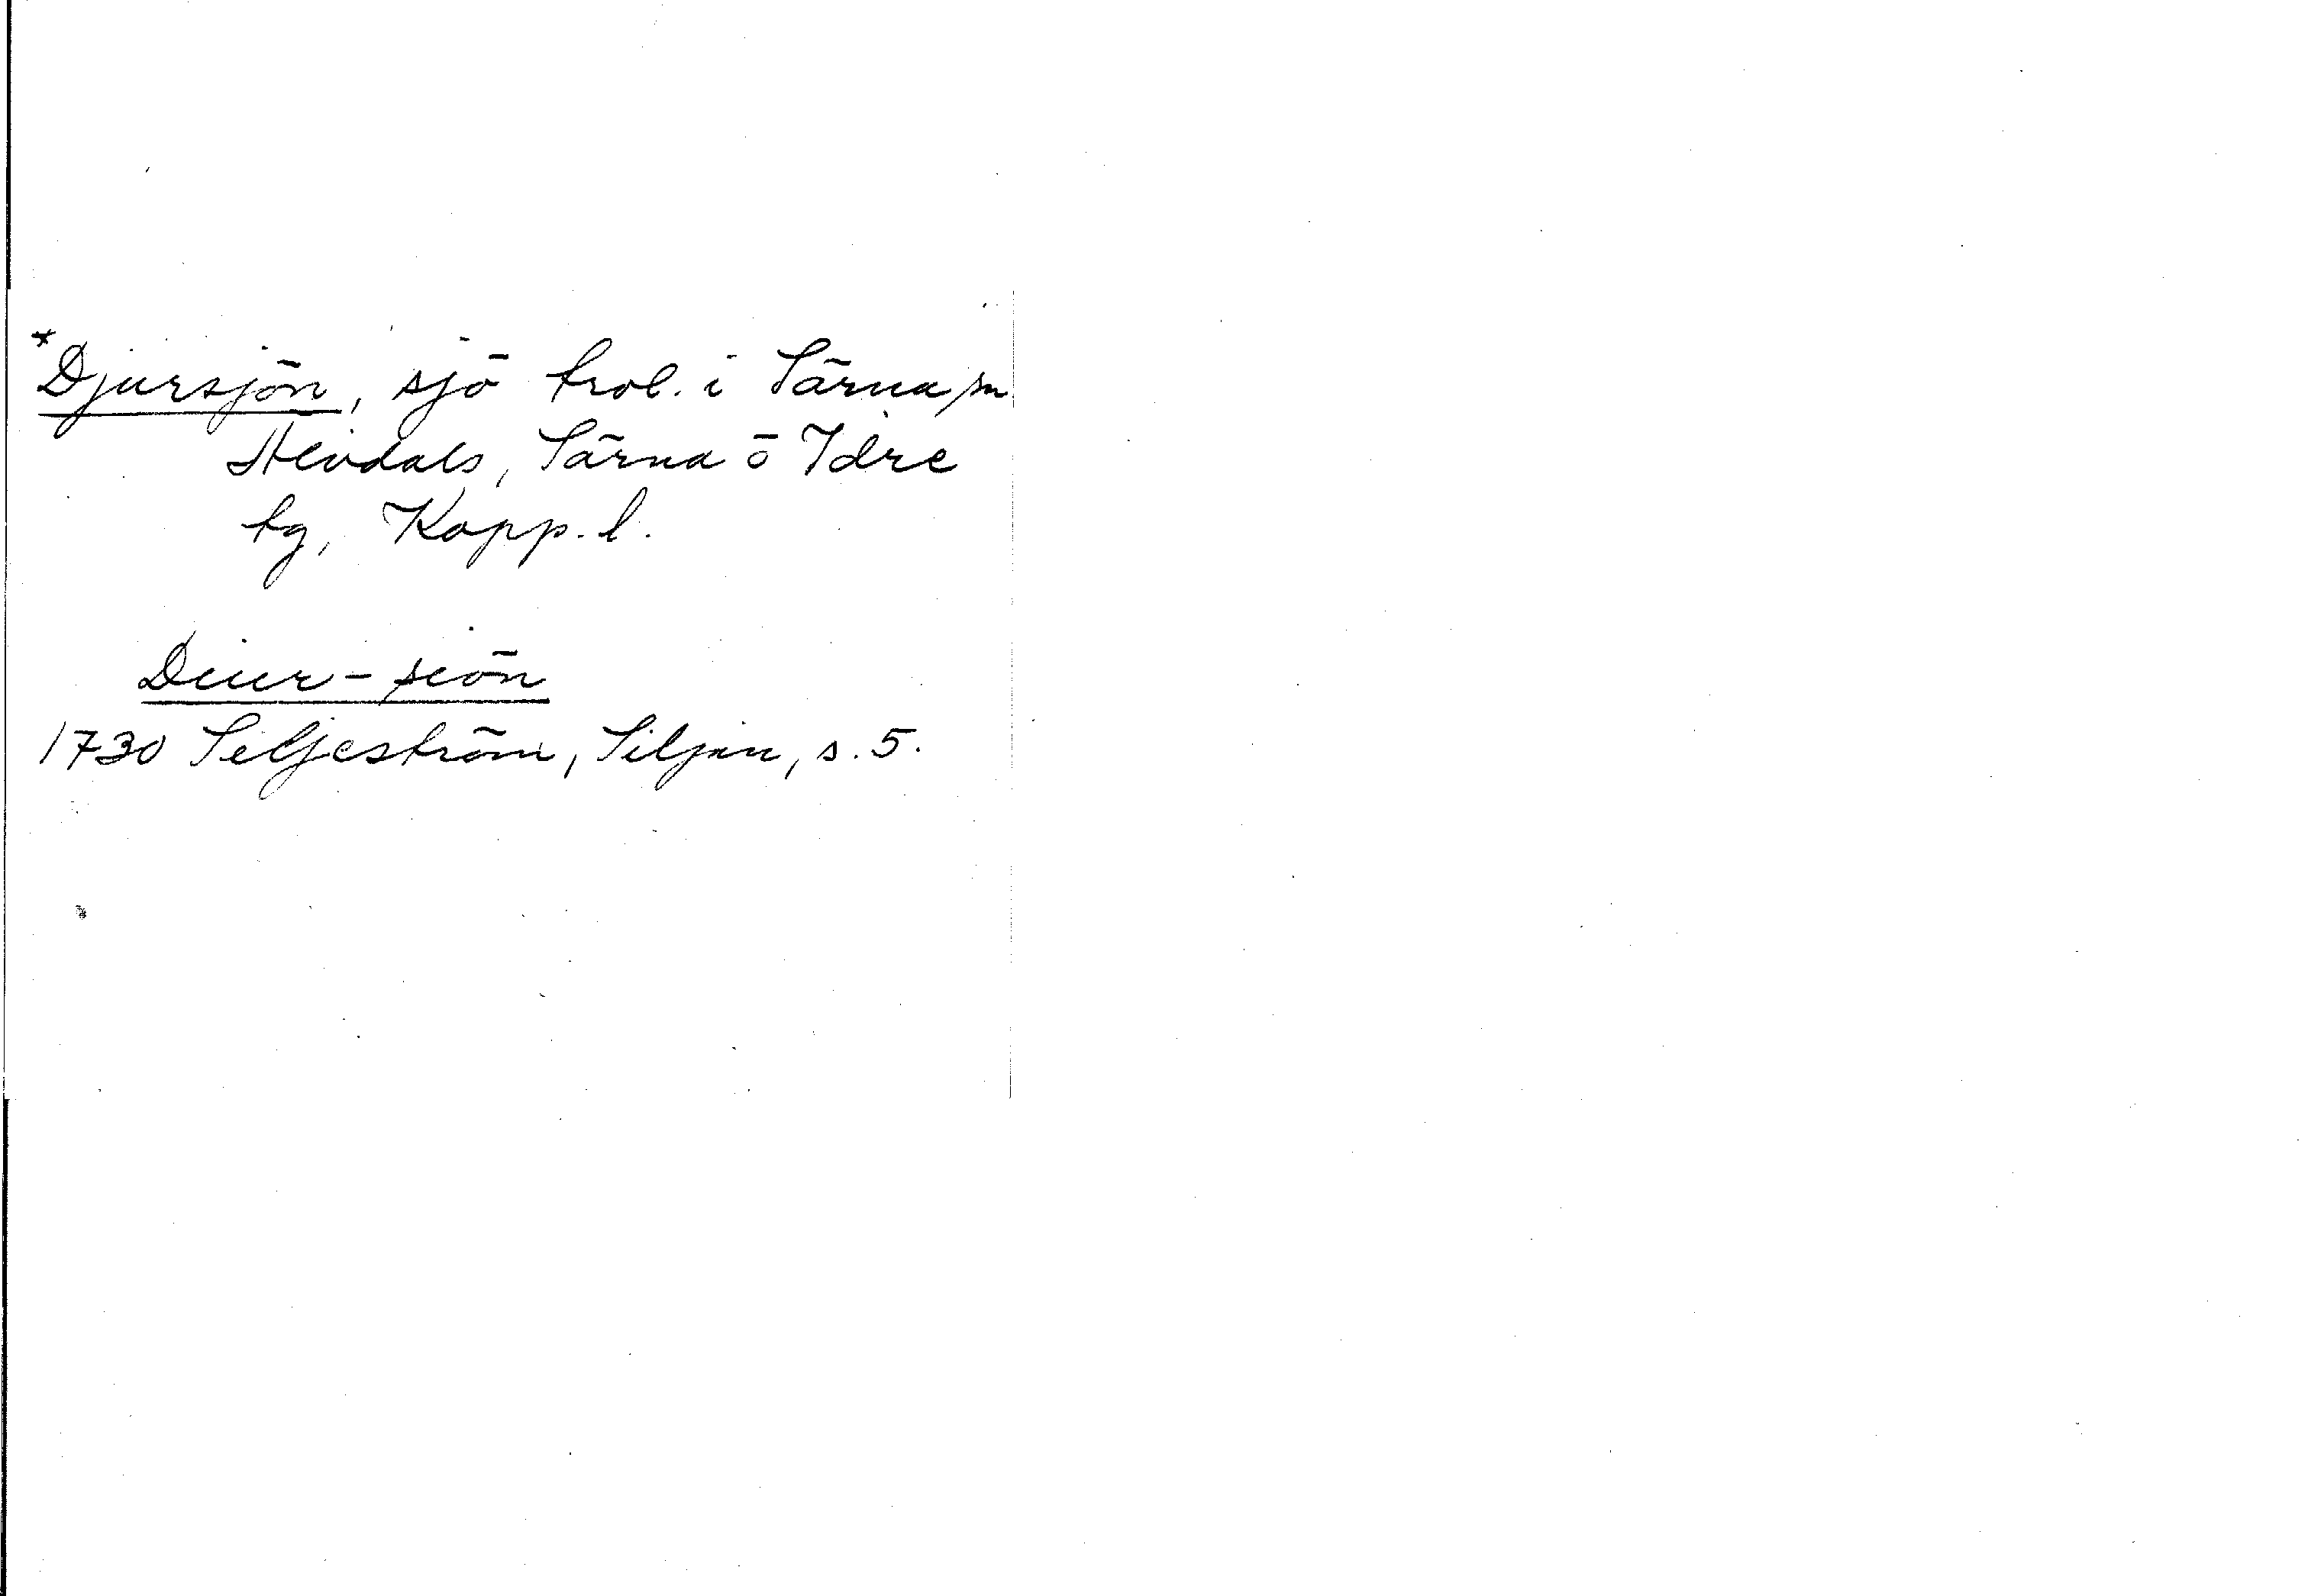 *Djursjön, sjö trol. i Särna sn
Älvdals, Särna o Idre
tg, Kopp. l.
Diur-siön
1730 Siljeström, Siljan, s. 5.